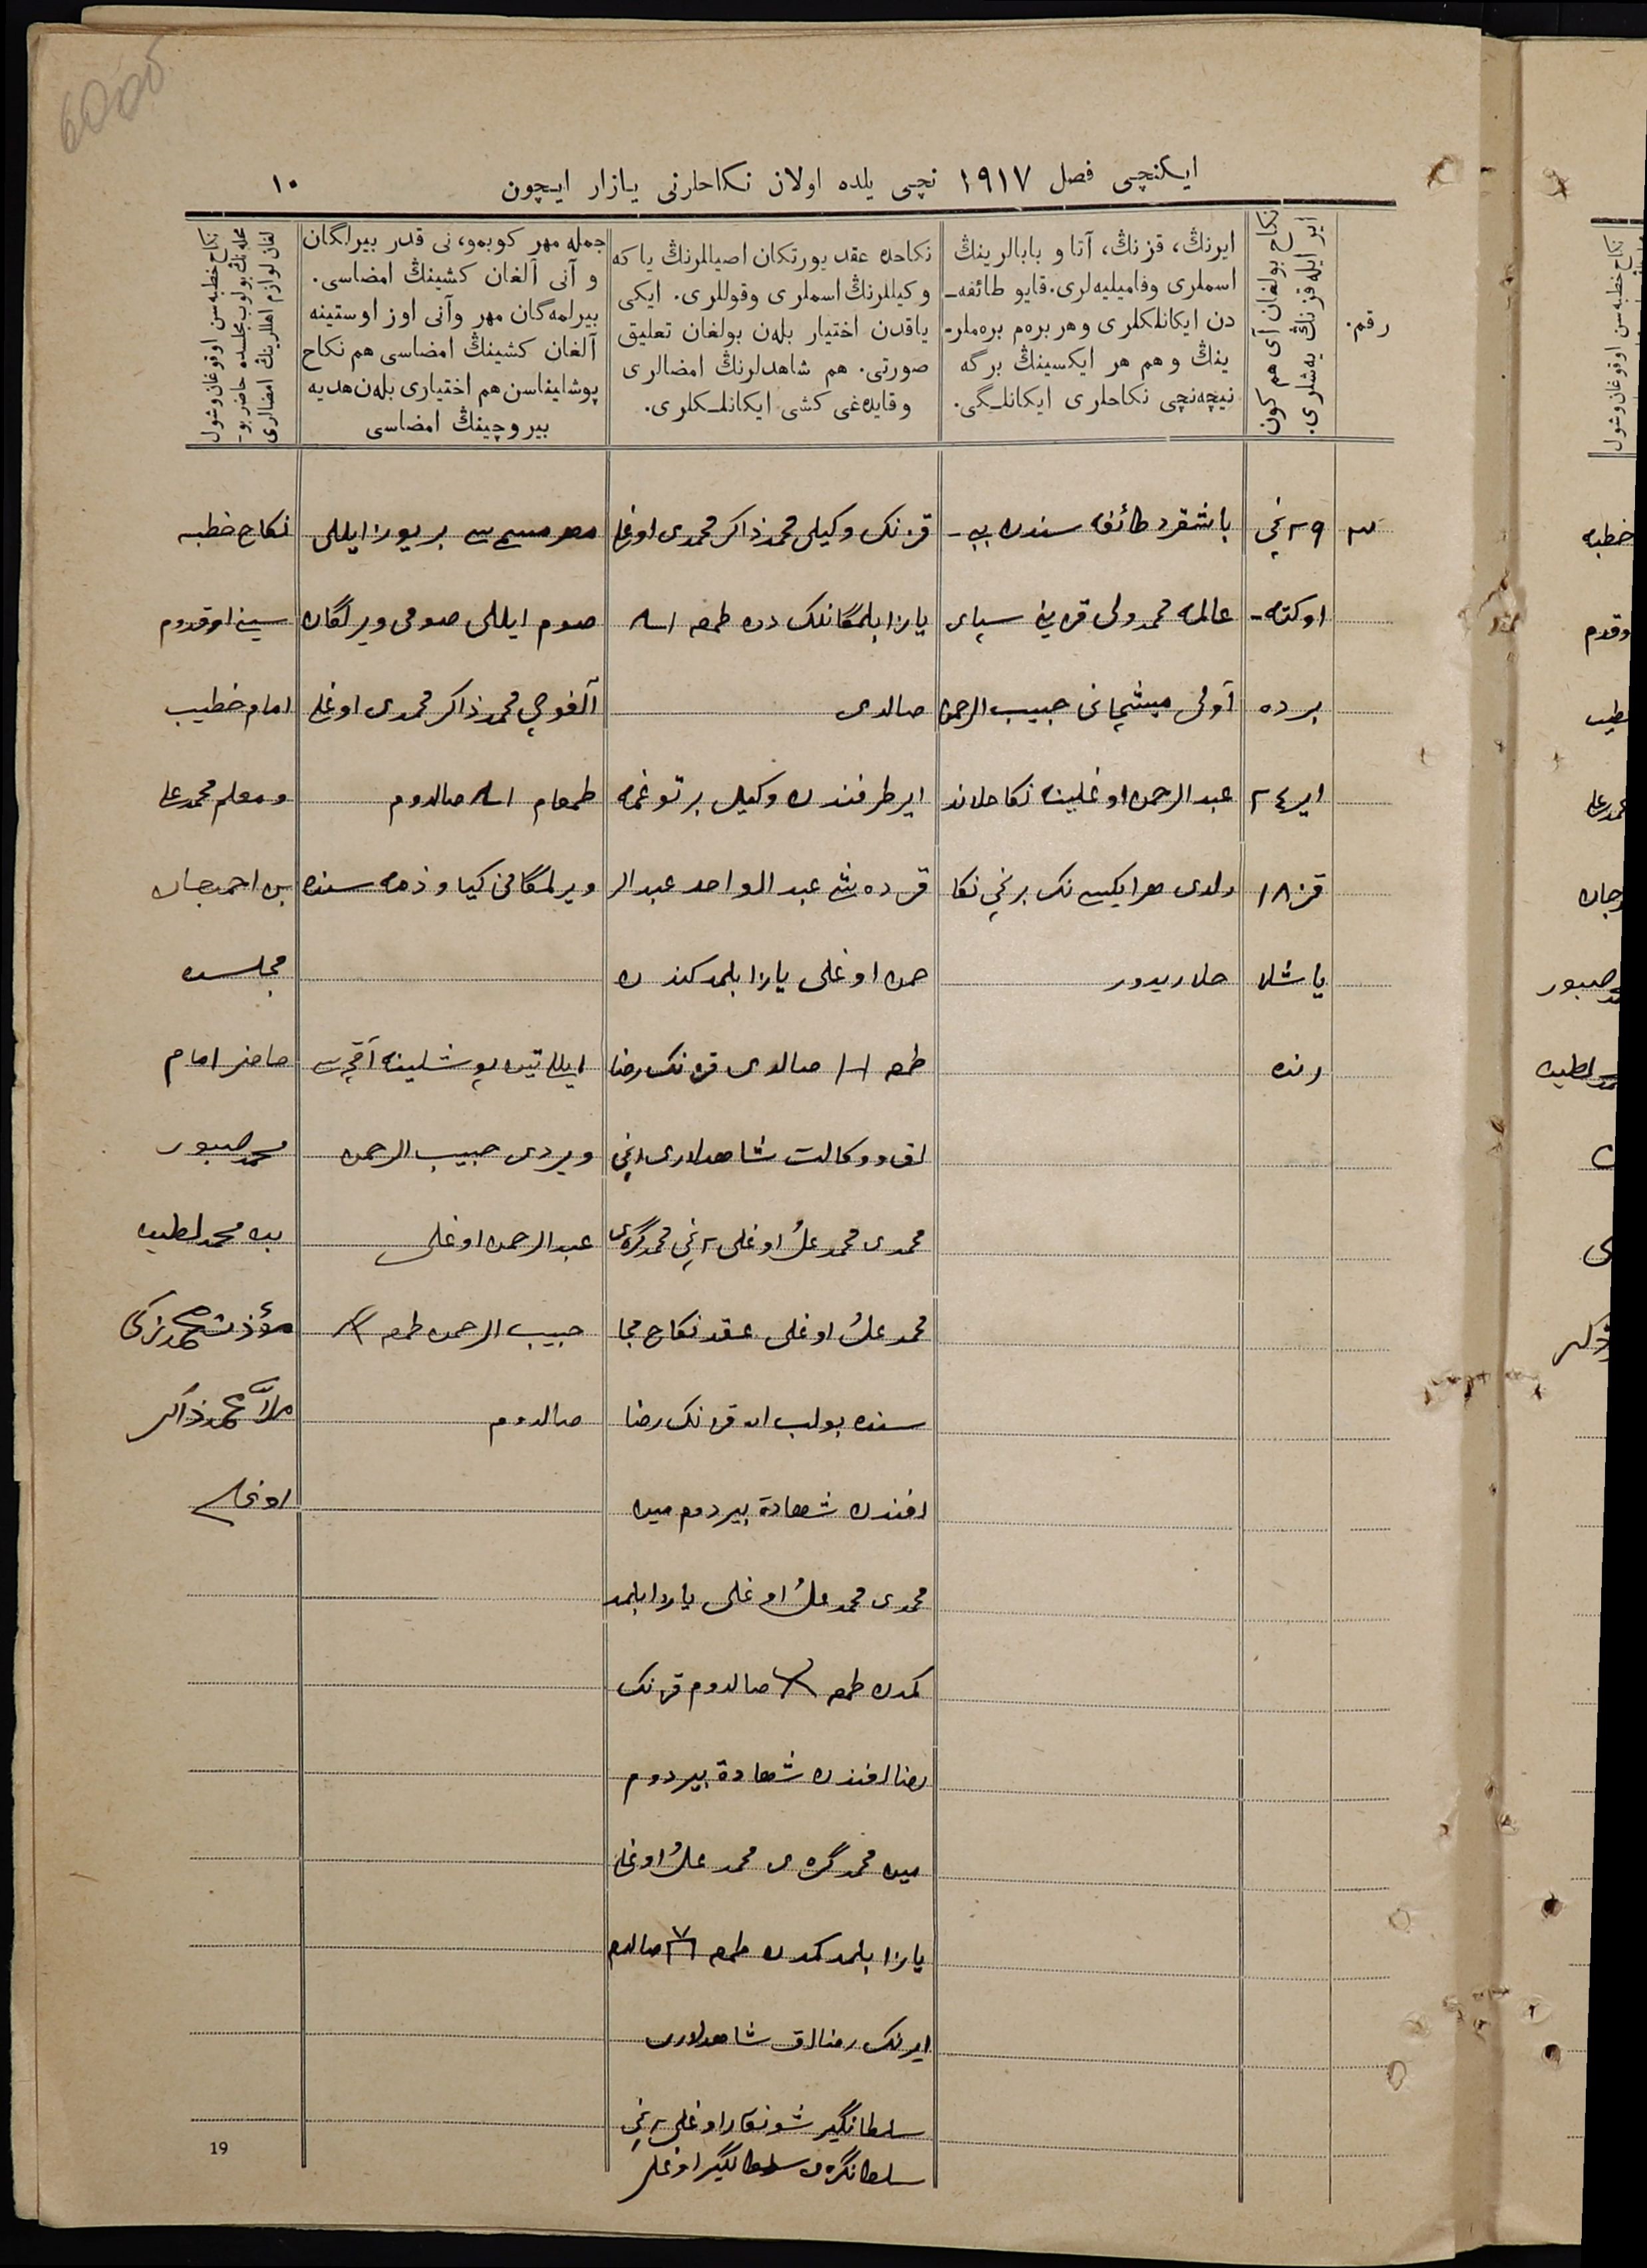 ایکنچی فصل ١٩١٧ نچی یلده اولان نکاحلرنی یازار ایچون
١٠
رقم.
نکاح بولغان آی هم کون
ایر ایله قزنڭ یه‌شلری.
ایرنڭ، قزنڭ، آتا و بابالرینڭ
اسملری وفامیلیه‌لری. قایو طائفه‌ـ
دن ایکانلکلری وهر بره‌م بره‌ملرـ
ینڭ و هم هر ایکسینڭ برگه
نیچه‌نچی نکاحلری ایکانلـگی.
نکاحده عقد یورتکان اصیللرنڭ یاکه
وکیللرنڭ اسملری وقوللری. ایکی
یاقدن اختیار بله‌ن بولغان تعلیق
صورتی. هم شاهدلرنڭ امضالری
وقایده‌غی کشی ایکانلـکلری.
جمله مهر کوبمو، نی قدر بیرلگان
و آنی آلغان کشینڭ امضاسی.
بیرلمه‌گان مهر وآنی اوز اوستینه
آلغان کشینڭ امضاسی هم نکاح
پوشلیناسن هم اختیاری بله‌ن هدیه
بیروچینڭ امضاسی
نکاح خطبه‌سن اوقوغان وشول
محله‌نڭ بولوب مجلسده حاضر بوـ
لغان لوازم اهللرینڭ امضالری
٣
٢٩ نچی
اوکتەـ
برده
ایر ٢٤
قز ١٨
یاشلا
رنده
باشقرد طائفه سندن بی ـ
عالمه محمدولی قزینی سپای
آولی میشچانی حبیب الرحمن
عبدالرحمن اوغلینه نکاحلاند
ولدی هرایکیسی نک برنچی نکا
حلاریدور
قزنک وکیلی محمدذاکر محمدی اوغلی
یازا بلمگانلک دن طمعه اسـه
صالدی
ایر طرفندن وکیل بر توغمه
قرده‌ش عبدالواحد عبدالر
حمن اوغلی یازا بلمدکندن
طمعه صالدی قزنک رضا
لق ووکالت شاهدلاری ١نچی
محمدی محمدعلی اوغلی ٢نچی محمدگره‌ی
محمدعلی اوغلی عقد نکاح مجا
سنده بولب اندا قزنک رضا
لفندن شهادة بیردوم مین
محمدی محمدعلی اوغلی یازا بلمد
کمدن طمعه صالدوم قزنک
رضالفندن شهادة بیردوم
مین محمدگره‌ی محمدعلی اوغلی
یازا بلمدکمدن طمعه صالدم
ایرنک رضالق شاهدلاری
سلطانگیر شونقار اوغلی ٢نچی
سلطانگره‌ی سلطانگیر اوغلی
مهر مسمی سی بر یوز ایللی
صوم ایللی صومی ویرلگان
آلغوچی محمدذاکر محمدی اوغلی
طمعام اسـه صالدوم
ویرلمگانی کیاو ذمه سنده
ایللی تین پوشلینه آقچه سی
ویردی حبیب الرحمن
عبدالرحمن اوغلی
حبیب الرحمن طمعه
صالدوم
نکاح خطبه
سینی اوقدوم
امام خطیب
ومعلم محمدعلی
بن احمدجان
مجلسده
حاضر امام
محمدصبور
بن محمدلطیف
مؤذن محمدزکی
ملا محمدذاکر
اوغلی
19